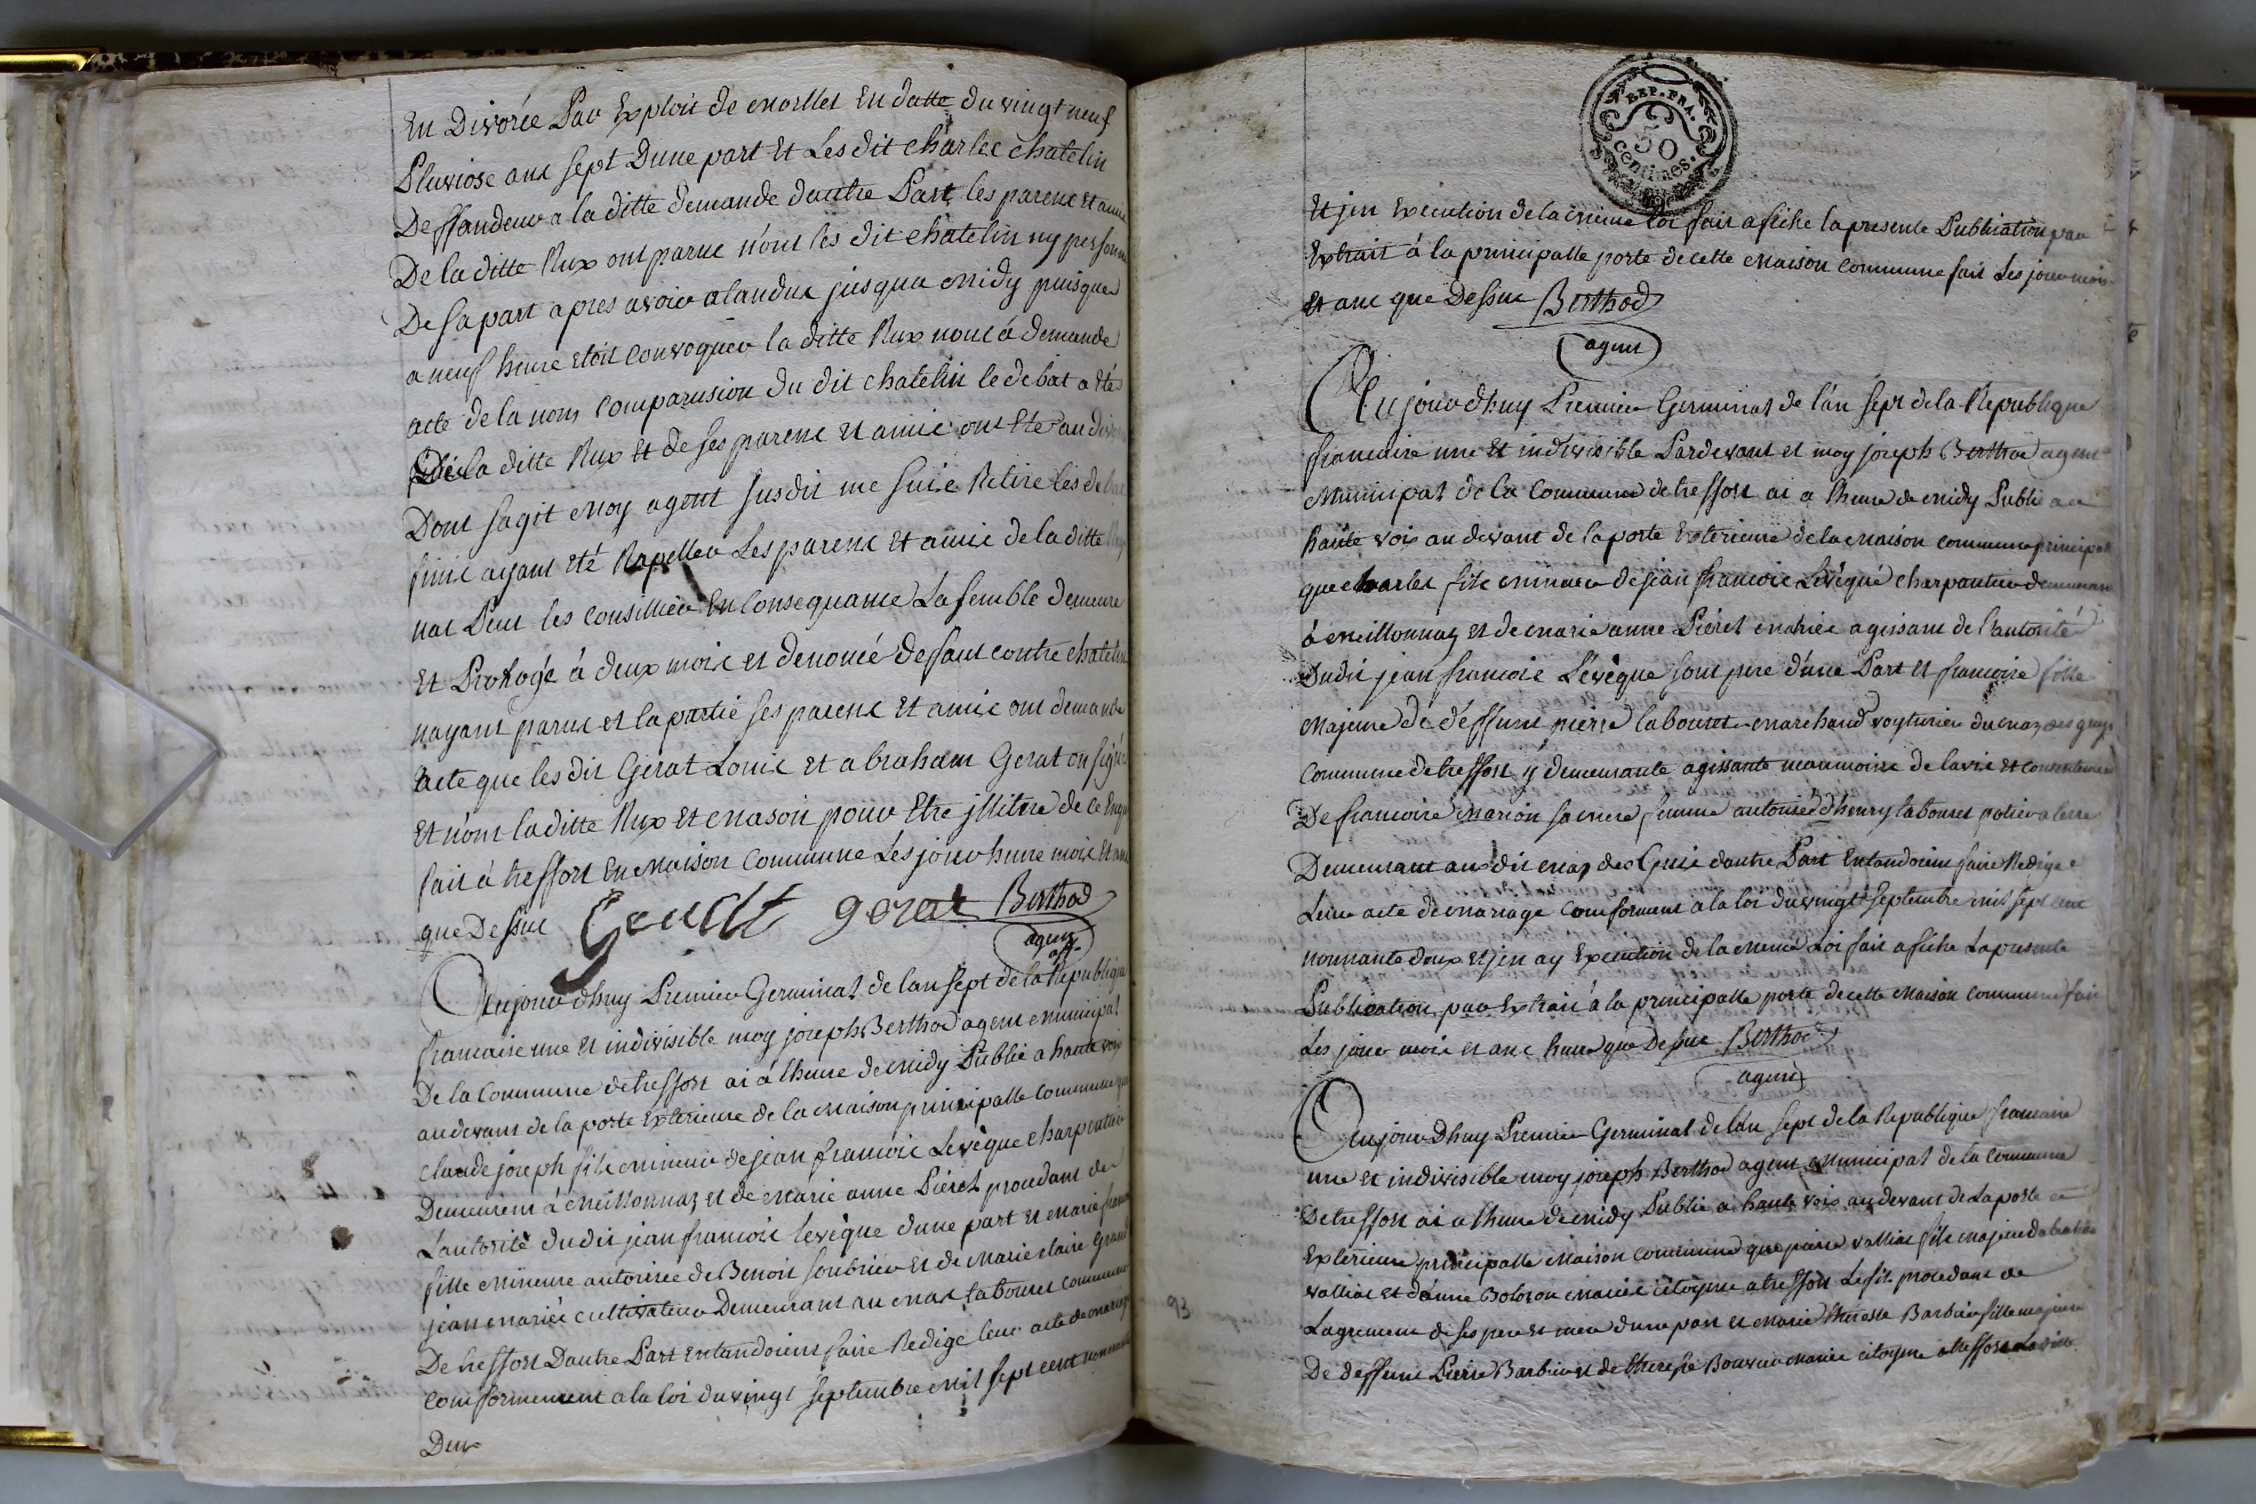 En Divorce Par Exploit de Morllet En datte du vingt neuf
Pluviose ans sept Dune part Et Les dit charles chatelin
Deffandeur a la ditte demande dautre Part, les parens Et amis
De la ditte Rux ont parus n'ont les dit chatelin ny personne
De sa part apres avoir atandus jusqua Midy puisque
a neuf heure etoit convoquer la ditte Rux nous á demande
acte de la nom comparusion du dit chatelin le debat a Etés
De la ditte Rux Et de ses parens Et amis ont Ete au
Dont sagit Moy agent susdit me suis Retire les
finis ayant Eté Rapeller Les parens Et amis de la ditte
nat Peut les consillier En Consequance La semble demeure
Et Prorogé á deux mois et denoncé defaut contre chatelin
nayant parus et la partie ses parens Et amis ont demande
acte que les dit Gerat Louis Et abraham Gerat on signé
Et n'ont la ditte Rux Et Mason pour Etre jllitere de ce
fait á treffort En Maison Commune Les jour heure mois Et ans
que Dessus Gerat gerat Berthod
agent
Aujourdhuy Premier Germinal de lan sept de la Republique
francaise une et indivisible moy joseph Berthod agent Municipal
De la Commune de treffort ai á lheure de Midy Publié a haute voix
au devant de la porte Exterieure de la Maison principalle commune que
claude joseph fils mineur de jean francois Levèque charpentier
Demeurent á Meillonnaz et de Marie anne Pieret procedant de
L'autorité dudit jean francois levèque dune part et Marie
fille Mineure autorisée de Benoit soubrier Et de Marie claire Grand
jean mariés cultivateur Demeurant au Mas tabouret commune
De treffort Dautre Part Entandoient faire Redigé leur acte de mariage
comformement a la loi du vingt septembre Mil sept cent nonnante
Deux
REP. FRA.
50
centimes.
Et jen Execution de la Meme loi fait afiche la presente Publication par
Extrait á la principalle porte de cette Maison Commune fait Les jour mois
Et ans que Dessus Berthod
agent
Aujourdhuy Premier Germinal de l'an sept de la Republique
francaise une Et indivisible Pardevant et moy joseph Berthod agent
Municipal de la Commune de treffort ai a lheure de Midy Publié a
haute voix au devant de la porte Exterieure de la Maison commune principalle
que charles fils mineur de jean francois Levèqué charpantier demeurant
á Meillonnaz Et de Marie anne Pieret Mariée agissant de l'autorité
Dudit jean francois Lévèque sont pere d'une Part et francoise fille
Majeure de deffunt pierre labouret Marchand voyturier du Maz des
Commune de treffort y demeurante agissante de lavis Et consentement
De francoise Marion sa Mere femme autorisée dhenry tabouret potier a terre
Demeurant aus dit Maz des Guis dautre Part Entandoient faire Redige
Leur acte de Mariage comforment a la loi du vingt septembre mil sept cent
nonnante deux et jen ay Execution de la Meme Loi fait afiche La presente
Publication par Extrait á la principalle porte de cette Maison commune fait
Les jour mois et ans heure que Dessus Berthod
agent
Aujour Dhuy Premier Germinal de lan sept de la Republique francaise
une et indivisible moy joseph Berthod agent Municipal de la Commune
De treffort ai a lheure de Midy Publié a haute voix au devant de La porte
Exterieure principalle Maison commune que pierre valliat fils majeur
valliat et d'anne mariés citoyens a treffort Le fils procedant de
Lagrement de ses pere et mere dune part et Marie theresse Barbier fille majeure
De deffunt Pierre Barbier et de therese Bouvier mariés citoyens a treffort
93